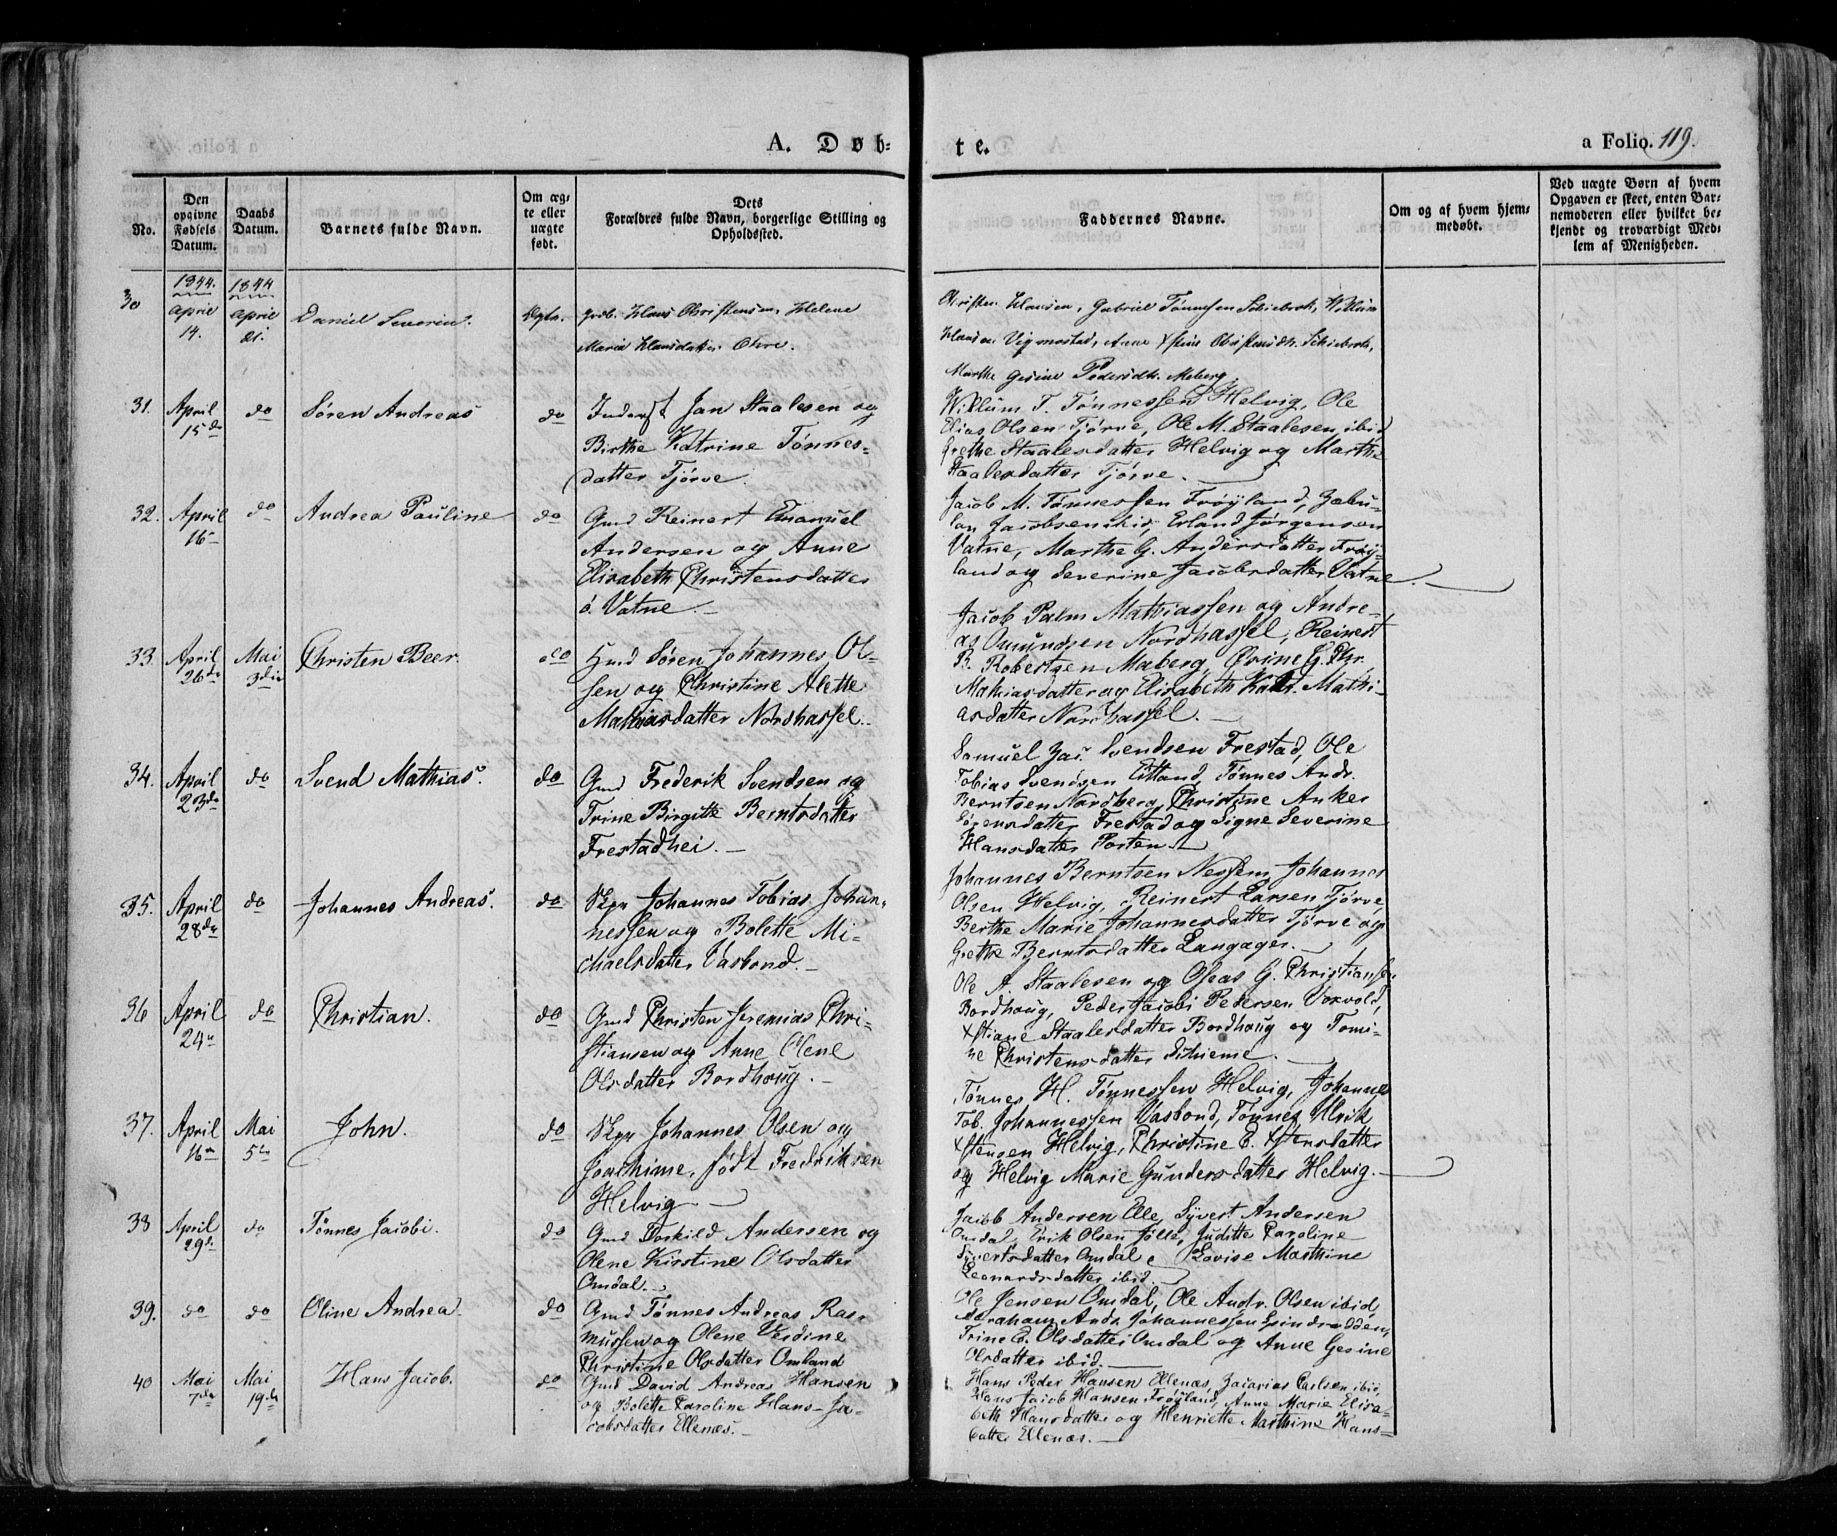 A. Døb-
te.
a Folio. 119.
No.
Den opgivne Fødsels Datum.
Daabs Datum.
Barnets fulde Navn.
Om æg-
te eller
uægte
født.
Dets
Forældres fulde Navn, borgerlige Stilling og
Opholdssted.
Faddernes Navne.
Om og af hvem hjem-
medøbt.
Ved uægte Børn af hvem
Opgaven er skeet, enten Bar-
nemoderen eller hvilket be-
kjendt og troværdigt Med-
lem af Menigheden.
1844. 1844
30 April 14. April 21. Daniel Severin. Ægte.
Hans Christensen, Helene
Maria Hansdatter Ohre.
Christen Hansen, Gabriel Tønnesen Schiebrok, Willum
Hansen Vigmostad, Anne Xstine Christensdtr. Schiebrok,
Marthe Gesine Pedersdtr. Meberg.
31. April 15de do Søren Andreas do
Inderst Jan Staalesen og
Birthe Katrine Tønnes-
datter Tjörve.
Willum T. Tønnessen Helvig, Ole
Elias Olsen Tjörve, Ole M. Staalesen ibid
Grethe Staalesdatter Helvig og Marthe
Staalesdatter Tjørve.
32. April 16 do Andrea Pauline do
Gmd Reinert Emanuel
Andersen og Anne
Elisabeth Christensdatter
ö. Vatne.
Jacob M. Tønnessen Frøyland, Zabu-
lon Jacobsen ibid, Erland Jørgensen
Vatne, Marthe G. Andersdatter Frøy-
land og Severine Jacobsdatter Vatne.
33. April 26de Mai 3die Christen Beer. do
Hmd Søren Johannes Ol-
sen og Christine Alette
Mathiasdatter Nordhassel.
Jacob Palm Mathiassen og Andre-
as Omundsen Nordhassel, Reinert
B. Robertsen Maberg, Øvine G. Chr.
Mathiasdatter og Elisabeth Katr. Mathi-
asdatter Nordhassel.
34. April 23de do Svend Mathias. do
Gmd Frederik Svendsen og
Trine Birgitte Berntsdatter
Frestadhei.
Samuel Zac. Svendsen Frestad, Ole
Tobias Svendsen Eitland, Tønnes Andr.
Berntsen Nordberg, Christine Anker
Sørensdatter Frestad og Signe Severine
Hansdatter Porten.
35. April 28de do Johannes Andreas. do
Skpr Johannes Tobias Johan-
nessen og Bolette Mi-
chaelsdatter Vasbond.
Johannes Berntsen Nessem, Johannes
Olsen Helvig, Reinert Larsen Tjörve,
Berthe Marie Johannesdatter Tjörve og
Grethe Berntsdatter Langager.
36 April 24 do Christian. do
Gmd Christen Jeremias Chri-
stiansen og Anne Olene
Olsdatter Bordhoug.
Ole A. Staalesen og Oseas G. Christiansen
Bordhoug, Peder Jacobi Pedersen Voxvold,
Xstiane Staalesdatter Bordhoug og Tomi-
ne Christensdatter Skieme.
37. April 16 Mai 5te John. do
Skpr Johannes Olsen og
Joachime, født Fredriksen
Helvig
Tønnes H. Tønnessen Helvig, Johannes
Tob. Johannessen Vasbond, Tønnes Ulrik
Xstensen Helvig, Christine C. Xstensdatter
og Helvig Marie Gundersdatter Helvig.
38 April 29de do Tønnes Jacobi. do
Gmd Torkild Andersen og
Olene Kirstine Olsdatter
Omdal.
Jacob Andersen Elle, Syvert Andersen
Omdal, Erik Olsen Jölle, Juditte Caroline
Syvertsdatter Omdal, Lovise Marthine
Leonardsdatter ibid.
39. do do Oline Andrea. do
Gmd Tønnes Andreas Ras-
mussen og Olene Verdine
Christine Olsdatter Omland
Ole Jensen Omdal, Ole Andr. Olsen ibid,
Abraham Andr. Johannessen
Trine C. Olsdatter Omdal og Anne Gesine
Olsdatter ibid.
40 Mai 7de Mai 19de Hans Jacob. do
Gmd David Andreas Hansen
og Bolette Caroline Hans-Ja-
cobsdatter Ellenæs.
Hans Peder Hansen Ellenæs, Zacarias Carlsen ibid,
Hans Jacob Hansen Frøyland, Anne Marie Elisa-
beth Hansdatter og Henriette Marthine Hans-
datter Ellenæs.